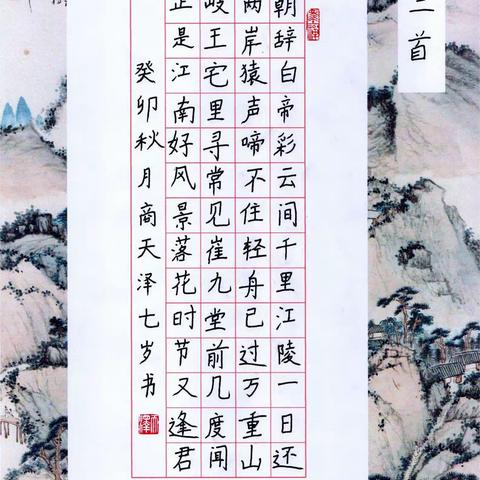 首
朝辞白帝彩云间千里江陵一日还
两岸猿声啼不住轻舟已过万重山
岐王宅里寻常见崔九堂前几度闻
正是江南好风景落花时节又逢君
癸卯秋月商天泽七岁书